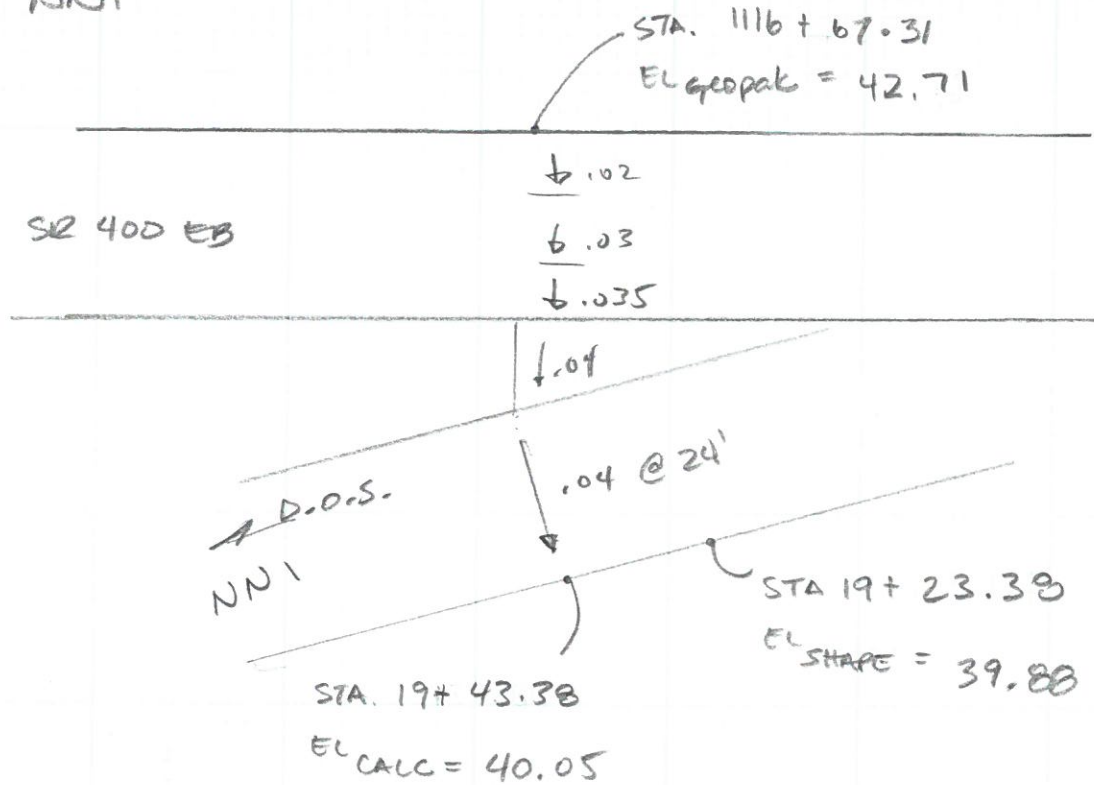 NN1
STA. 1116 + 67.31
EL geopak = 42.71
.02
SR 400 EB
.03
.035
.04
.04 @ 24'
D.O.S.
NN1
STA 19 + 23.38
EL SHAPE = 39.88
STA. 19 + 43.38
EL CALC = 40.05